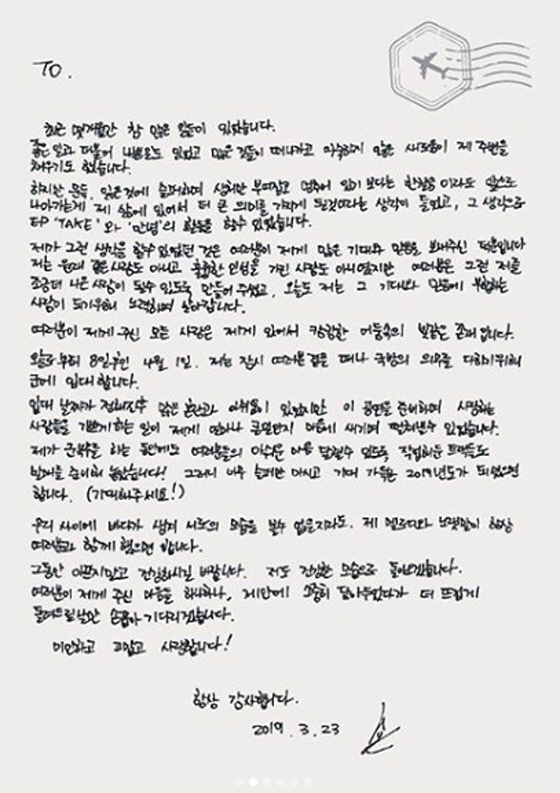 TO.
최근 몇개월간 참 많은 일들이 있었습니다.
좋은 일과 더불어 나쁜일도 있었고 많은 것들이 떠나가고 익숙하지 않은 새로움이 제 주변을
채우기도 했습니다.
하지만 문득, 잃은것에 슬퍼하며 상처만 부여잡고 멈추어 있기 보다는 한걸음이라도 앞으로
나아가는게 제 삶에 있어서 더 큰 의미를 가지게 될것이라는 생각이 들었고, 그 생각으로
EP 'TAKE' 와 '만념'의 활동을 할수 있었습니다.
제가 그런 생각을 할수 있었던 것은 여러분이 제게 많은 기대와 믿음을 보내주신 덕분입니다
저는 원래 좋은사람도 아니고 훌륭한 인성을 가진 사람도 아니였지만 여러분은 그런 저를
조금더 나은 사람이 될수 있도록 만들어 주셨고, 오늘도 저는 그 기대와 믿음에 부합하는
사람이 되기위해 노력하며 살아갑니다.
여러분이 제게 주신 모든 사랑은 제게 있어서 캄캄한 어둠속의 빛같은 존재 입니다.
오늘로부터 8일후인 4월 1일. 저는 잠시 여러분 곁을 떠나 국방의 의무를 다하기위해
군에 입대 합니다.
입대 날짜가 정해진후 많은 혼란과 아쉬움이 있었지만 이 공연을 준비하며 사랑하는
사람들을 기쁘게 하는 일이 제게 얼마나 큰일인지 마음에 새기며 떨쳐낼수 있었습니다.
제가 군복무를 하는 동안에도 여러분들의 아쉬운 마음 달랠수 있도록 작업해둔 트랙들도
발매를 준비해 놓았습니다! 그러니 너무 슬퍼만 마시고 기대 가득한 2019년도가 되었으면
합니다. (기대해주세요!)
우리 사이에 바다가 생겨 서로의 모습을 볼수 없을지라도. 제 멜로디와 노랫말이 항상
여러분과 함께 했으면 합니다.
그동안 아프지말고 건강하시길 바랍니다. 저도 건강한 모습으로 돌아오겠습니다.
여러분이 제게 주신 마음을 하나하나, 제안에 소중히 담아두었다가 더 뜨겁게
돌려드릴날만 손꼽아 기다리겠습니다.
미안하고 고맙고 사랑합니다!
항상 감사합니다.
2019. 3. 23